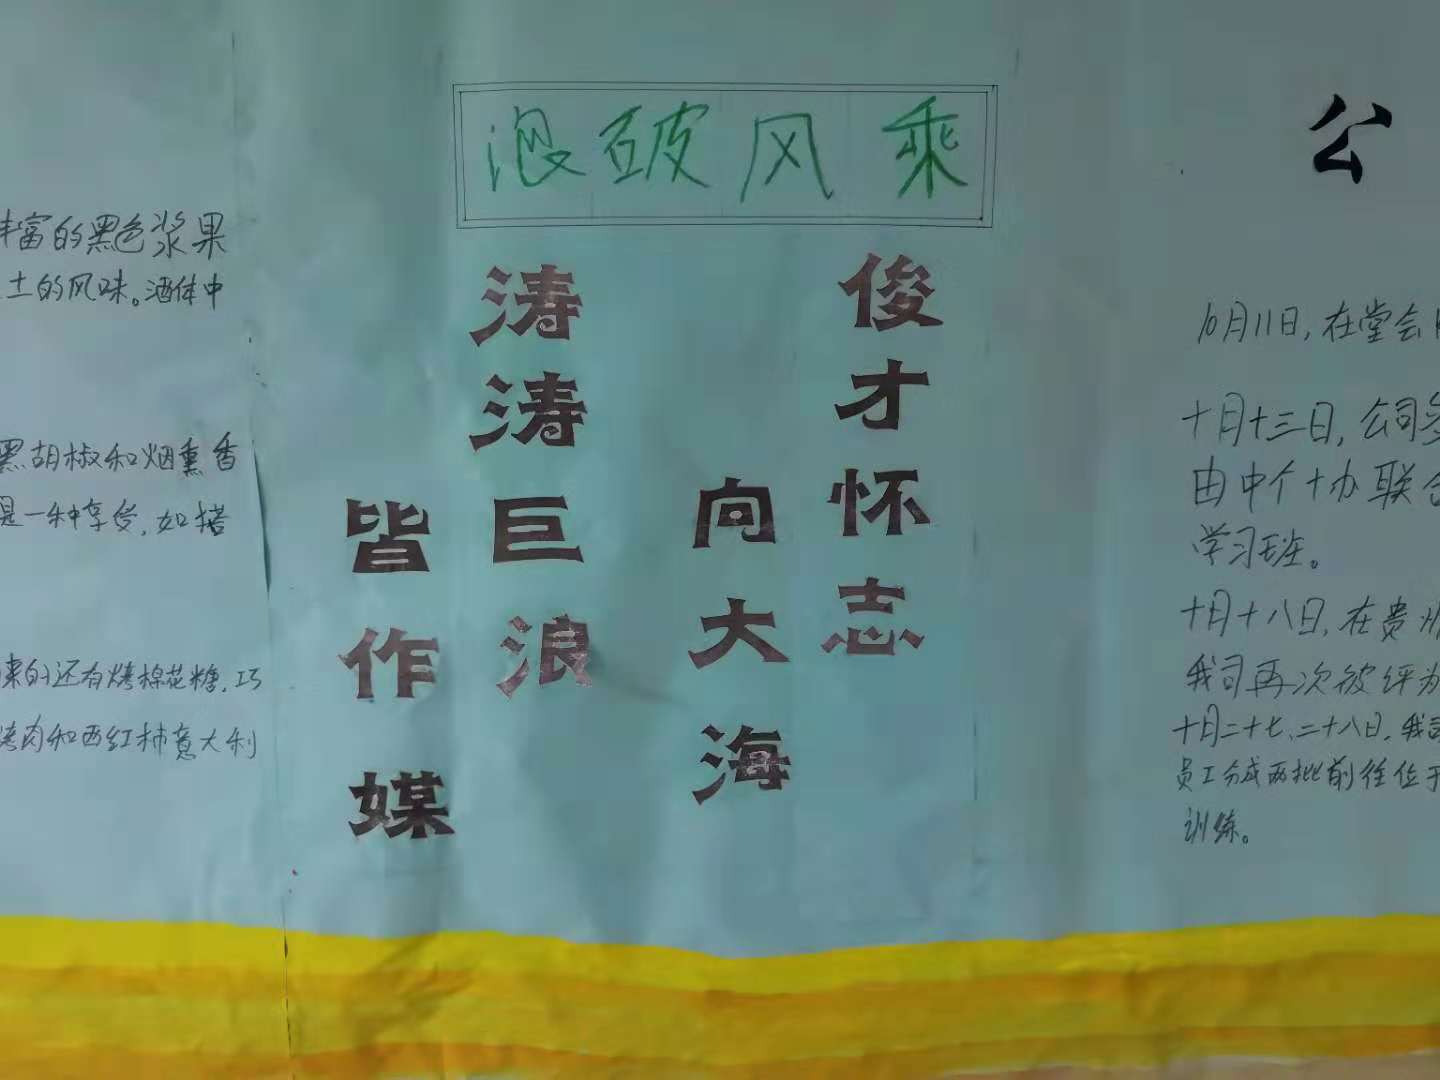 乘风破浪
俊才怀志
向大海
涛涛巨浪
皆作媒
丰富的黑色浆果
土的风味。酒体中
黑胡椒和烟熏香
是一种享受,如搭
来的还有烤棉花糖,巧
烤肉和西红柿意大利
公
10月11日,在堂会
十月十三日,公司
由中个十办联合
学习班。
十月十八日,在贵州
我司再次被评为
十月二十七、二十八日,我司
员工分成两批前往位于
训练。